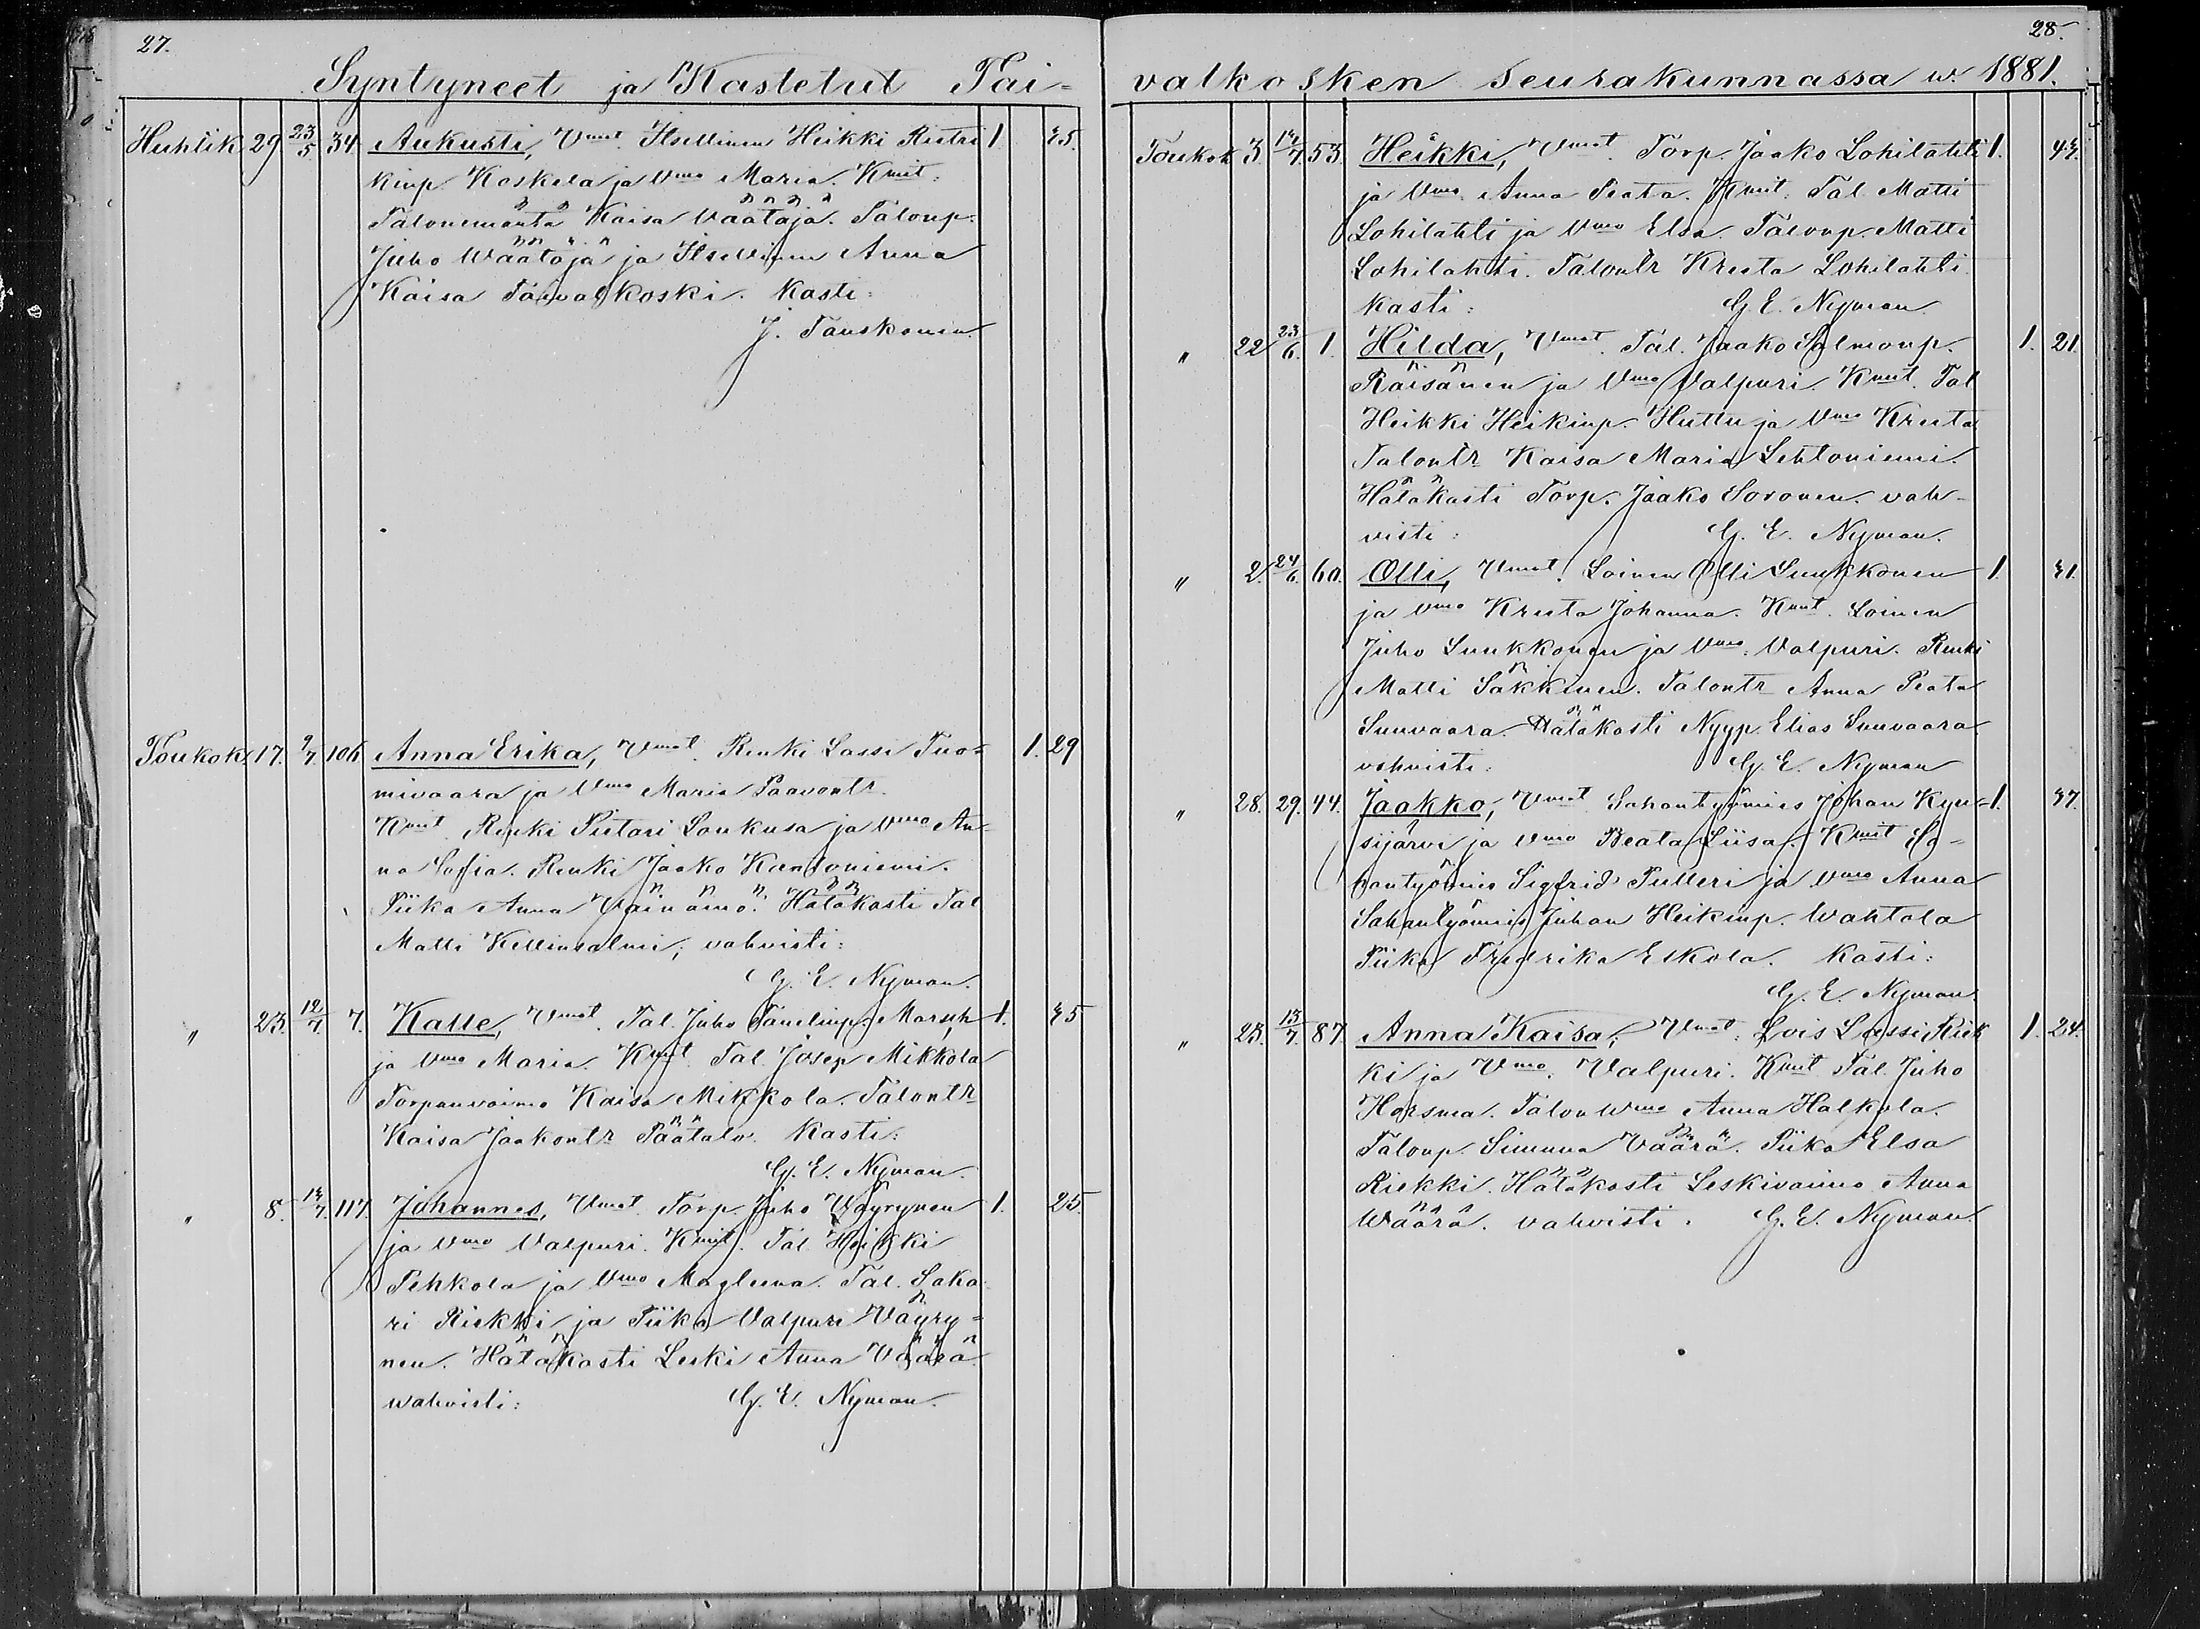 27.
Syntyneet ja Kastetut Tai-
Huhtik 29 23/5 34 Aukusti, Vmat. Itsellinen Heikki Ristri 1 35.
kinp. Koskela ja Vmo Maria. Kmit:
Talonemäntä Kaisa Väätäjä. Talonp.
Juho Wäätäjä ja Itsellinen Anna
Kaisa Taivalkoski. Kasti:
J. Tauskonen
Toukok 17. 9/7. 106 Anna Erika, Vmat. Renki Lassi Tuo= 1. 29
mivaara ja Vmo Maria Paavontr.
Kmit Renki Pietari Loukusa ja Vmo An-
na Sofia. Renki Jaako Kantoniemi.
Piika Anna Väinämö. Hätäkasti Tal
Matti Kellinsalmi, vahvisti:
G. E. Nyman.
" 23. 12/7 7. Kalle, Vmat. Tal. Juho Tanelinp. Marsch 1. 35
ja Vmo Maria. Kmit. Tal. Josep Mikkola
Torpanvaimo Kaisa Mikkola. Talontr
Kaisa Jaakontr Päätalo. Kasti:
G. E. Nyman.
" 8. 14/7. 117. Johannes, Vmat. Torp. Juho Väyrynen 1. 25.
ja Vmo Valpuri. Kmit. Tal. Heikki
Pehkola ja Vmo Magleena. Tal. Saka
ri Riekki ja Piika Valpuri Wäyry=
nen. Hätäkasti Leski Anna Väärä
wahvisti: G. E. Nyman.
28.
valkosken seurakunnassa w. 1881.
Toukok 3. 14/7. 53. Heikki, Vmat. Torp. Jaako Lohilahti 1. 43.
ja Vmo. Anna Peata. Kmit. Tal. Matti
Lohilahti ja Vmo Elsa. Talonp. Matti
Lohilahti. Talontr Kreeta Lohilahti.
Kasti: G. E. Nyman
" 22 23/6. 1. Hilda, Vmat. Tal. Jaako Salmonp. 1. 21.
Räisänen ja Vmo Valpuri. Kmit. Tal
Heikki Heikinp. Huttu ja Vmo Kreeta
Talontr Kaisa Maria Lehtoniemi.
Hätäkasti Torp. Jaako Soronen. vah-
visti: G. E. Nyman.
" 2. 24/6. 60. Olli, Vmat. Loinen Olli Luukkonen 1. 31.
ja Vmo Kreeta Johanna. Kmit. Loinen
Juho Luukkonen ja Vmo. Valpuri. Renki
Matti Säkkinen. Talontr Anna Peata
Suuvaara. Hätäkasti Nyyp. Elias Suuvaara
vahvisti: G. E. Nyman
" 28. 29. 44. Jaakko, Vmat. Sahantyömies Johan Kyn- 1. 37.
sijärvi ja Vmo Beata Liisa. Kmit Sa-
hantyömies Sigfrid Pulleri ja Vmo Anna
Sahantyömies Juhan Heikinp. Wahtola
Piika Fredrika Eskola. Kasti:
G. E. Nyman.
" 23. 13/7. 87. Anna Kaisa, Vmat: Lois Lassi Riek 1. 24.
ki ja Vmo. Valpuri. Kmit Tal. Juho
Horsma. Talon Wmo Anna Halkola.
Talonp. Simuna Väärä. Piika Elsa
Riekki. Hätäkasti Leskivaimo Anna
Wäärä. vahvisti. G. E. Nyman.